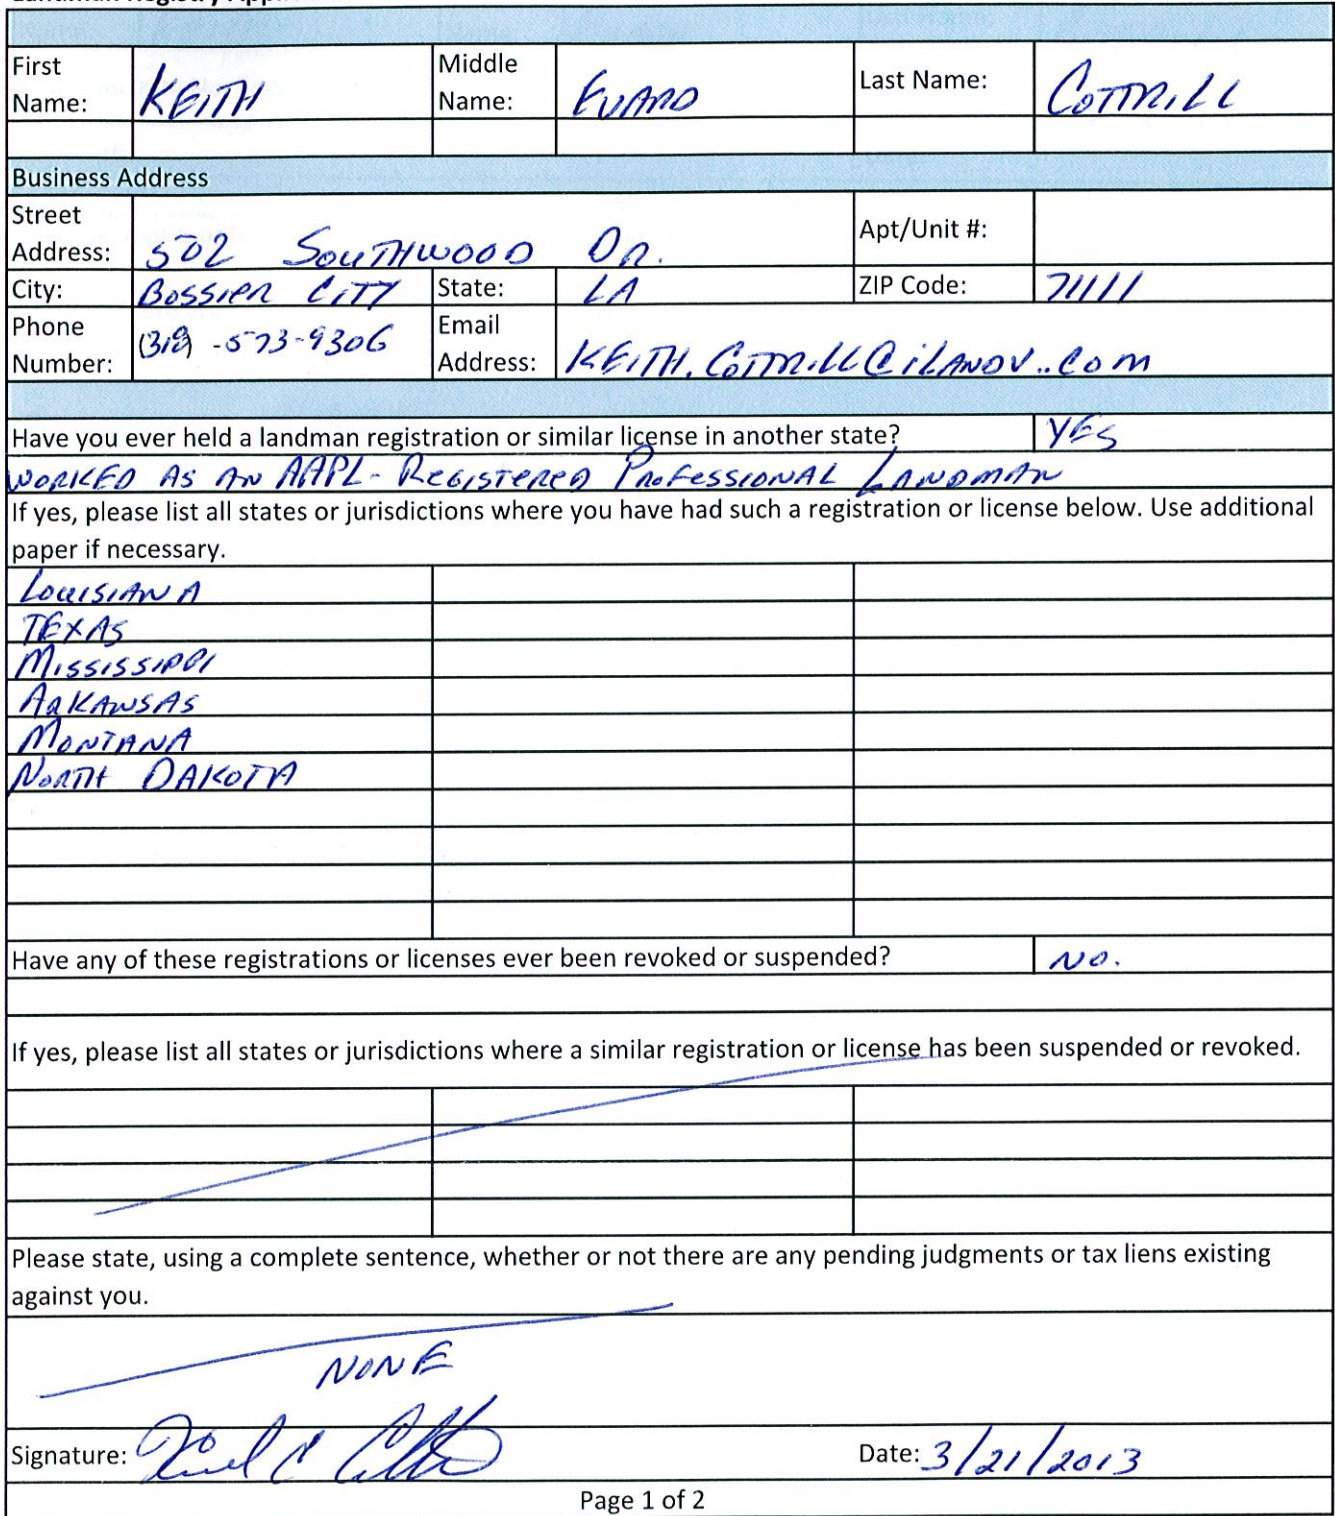 First
Name: KEITH Middle
Name: EVARD Last Name: COTTRILL
Business Address
Street
Address: 502 SOUTHWOOD DR. Apt/Unit #:
City: BOSSIER CITY State: LA ZIP Code: 71111
Phone
Number: (318) -573-9306 Email
Address: KEITH.COTTRILL@ILANDV..COM
Have you ever held a landman registration or similar license in another state? YES
WORKED AS AN AAPL-REGISTERED PROFESSIONAL LANDMAN
If yes, please list all states or jurisdictions where you have had such a registration or license below. Use additional
paper if necessary.
LOUISIANA
TEXAS
MISSISSIPPI
ARKANSAS
MONTANA
NORTH DAKOTA
Have any of these registrations or licenses ever been revoked or suspended? NO.
If yes, please list all states or jurisdictions where a similar registration or license has been suspended or revoked.
Please state, using a complete sentence, whether or not there are any pending judgments or tax liens existing
against you.
NONE
Signature: Date: 3/21/2013
Page 1 of 2